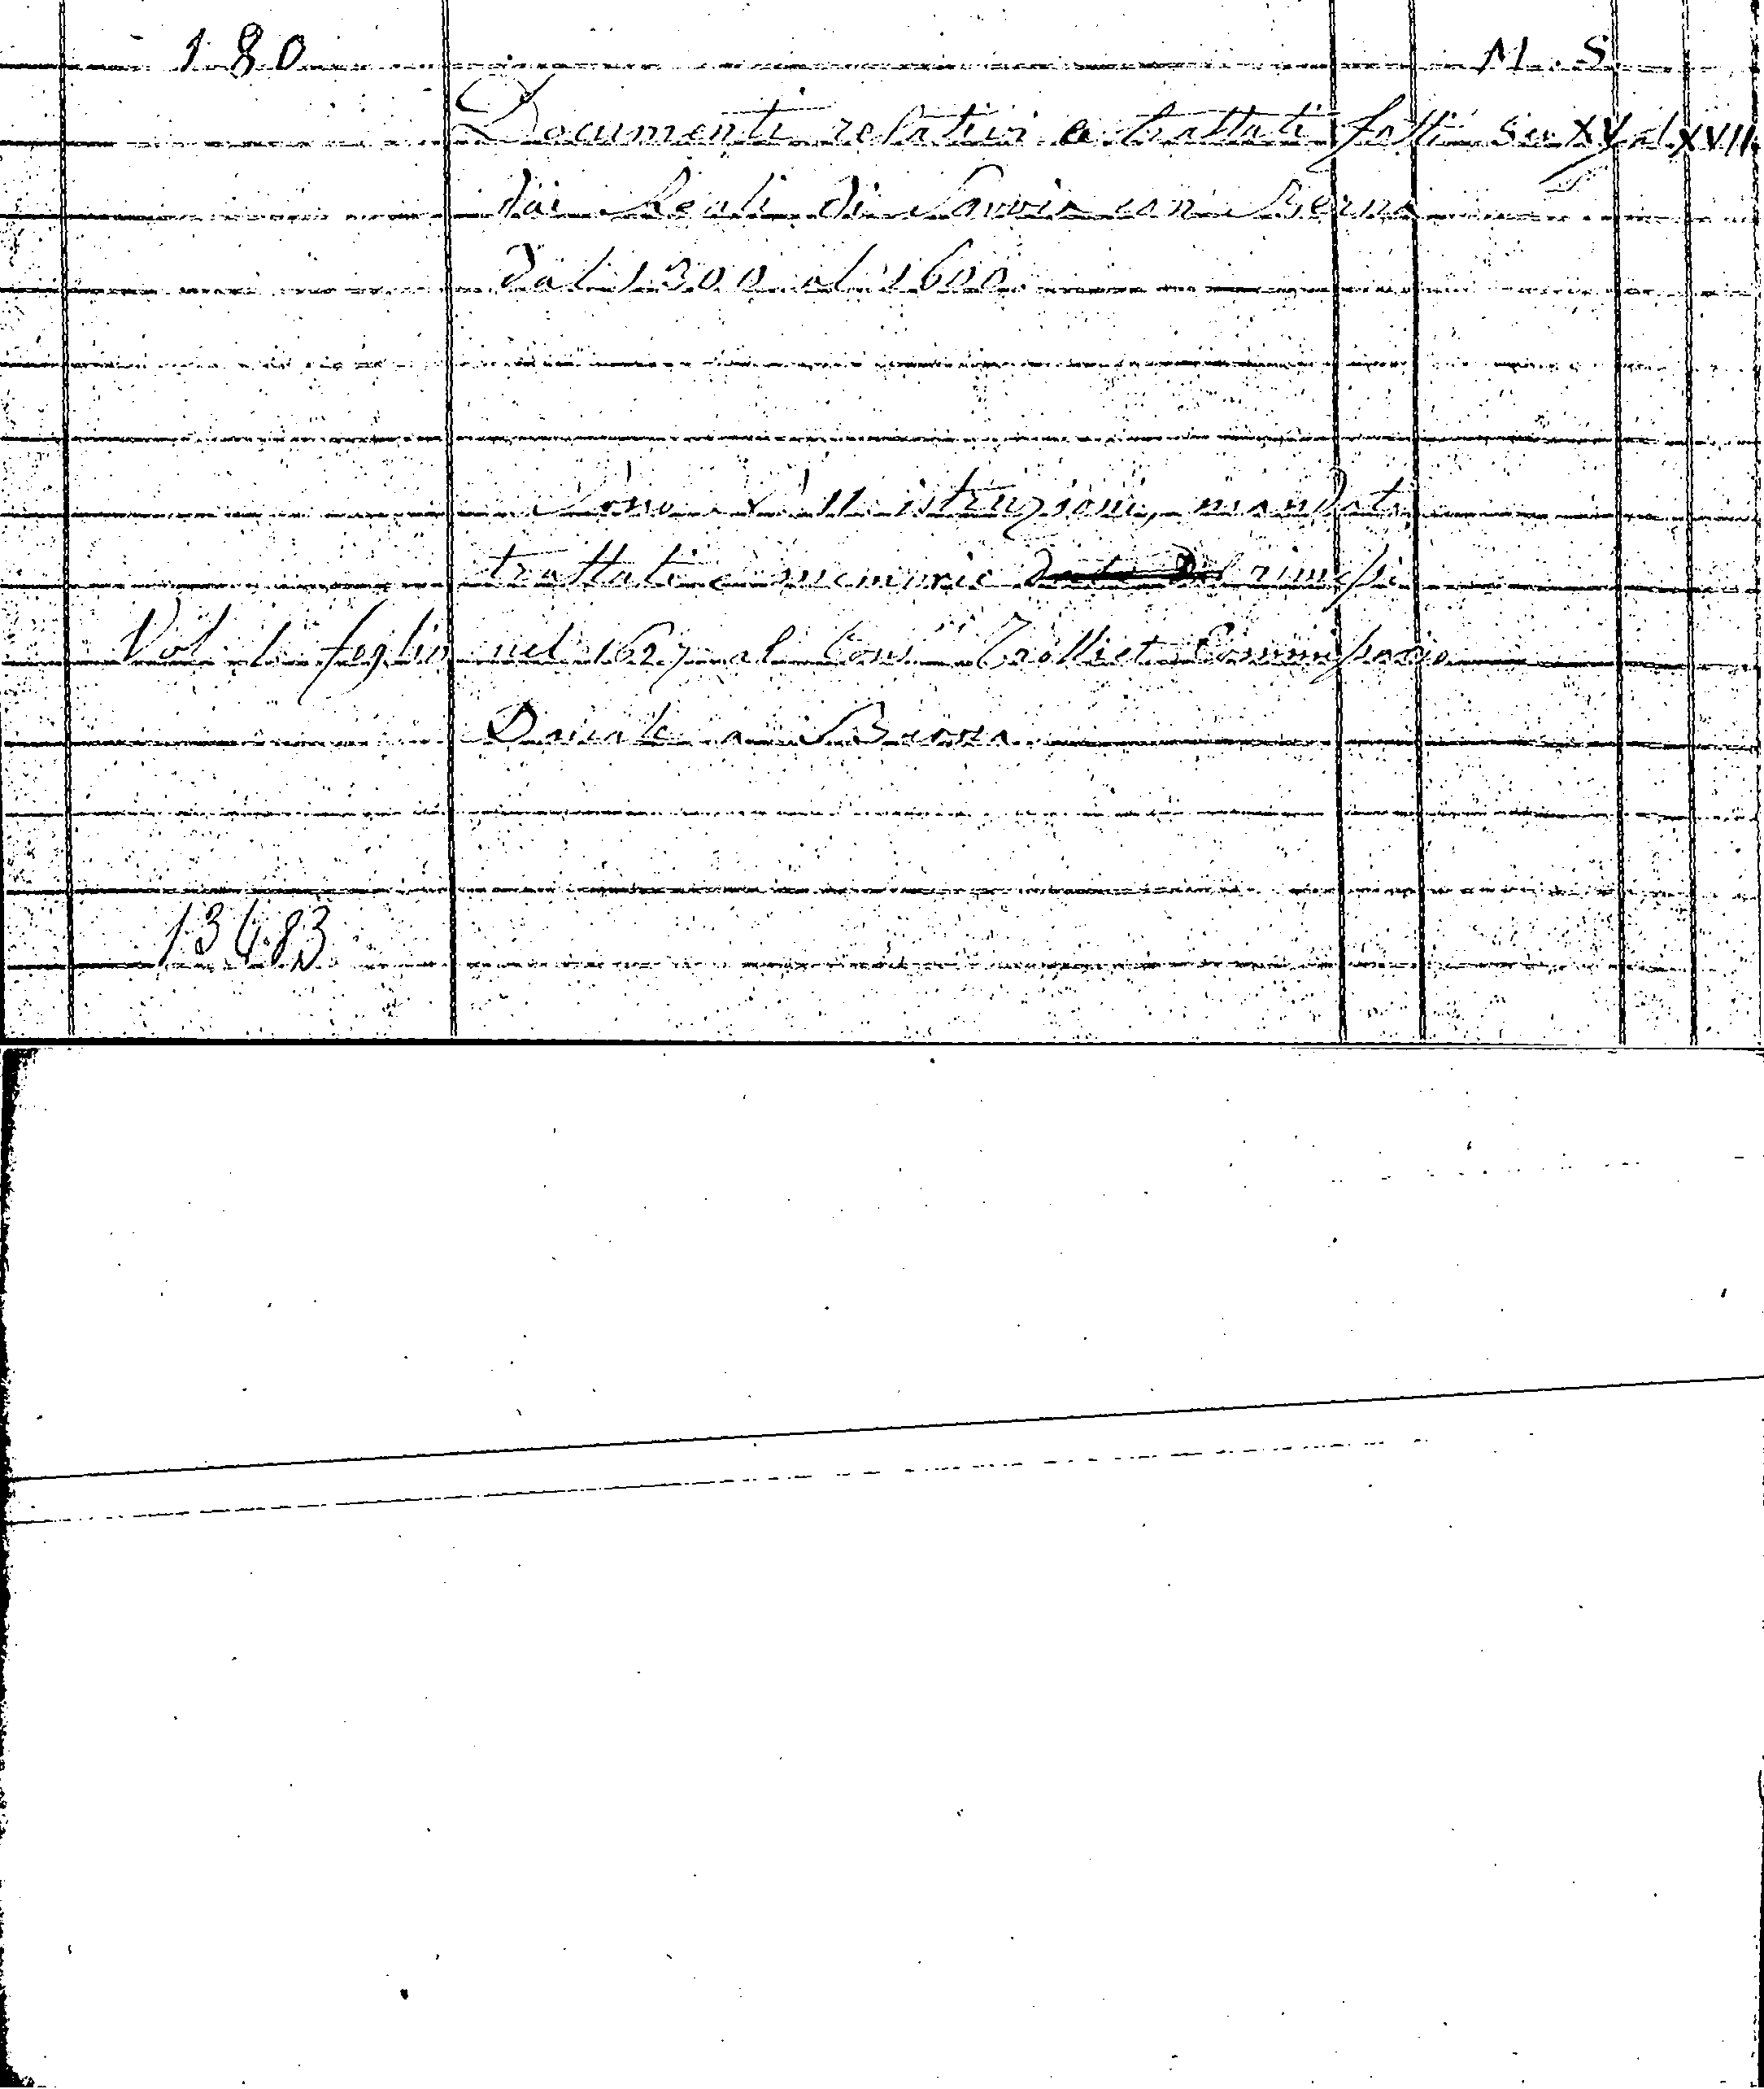 180 M.S.
Documenti relativi a trattati fatti Sec XV al XVII
dai Reali di Savoia con Berna
dal 1300 al 1600
Sono istruzioni, mandati
trattati e memorie rimesse
Vol. 1 foglio nel 1627 al Cons Trolliet Commissario
Ducale a Berna
13483